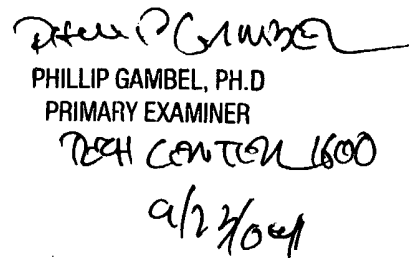 Phillip Gambel
PHILLIP GAMBEL, PH.D
PRIMARY EXAMINER
TECH CENTER 1600
9/23/04